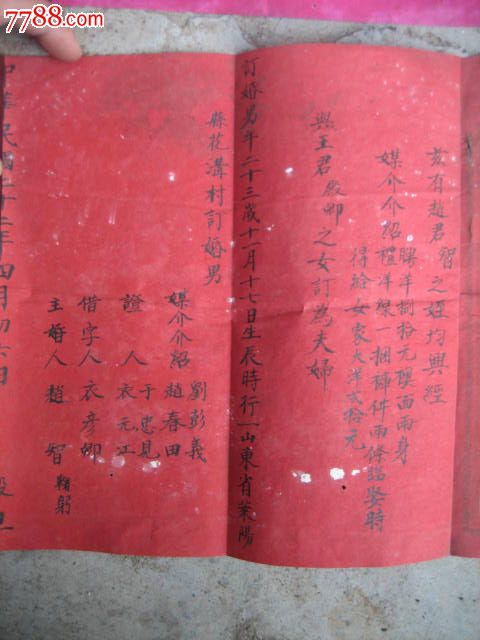 7788.com
兹有趙君智之姪均興經
媒介介紹
禮洋線一捆褲件兩條謚娶時
得給女家大洋弍拾元
與王君殿卿之女訂為夫婦
訂婚男年二十三歲十一月十七日生辰時行一山東省萊陽
縣花溝村訂婚男
媒介介紹
劉彭義
趙春田
證人
于忠見
衣元江
借字人衣彥卿
主婚人趙智鞠躬
中華民國廿二年四月初六日